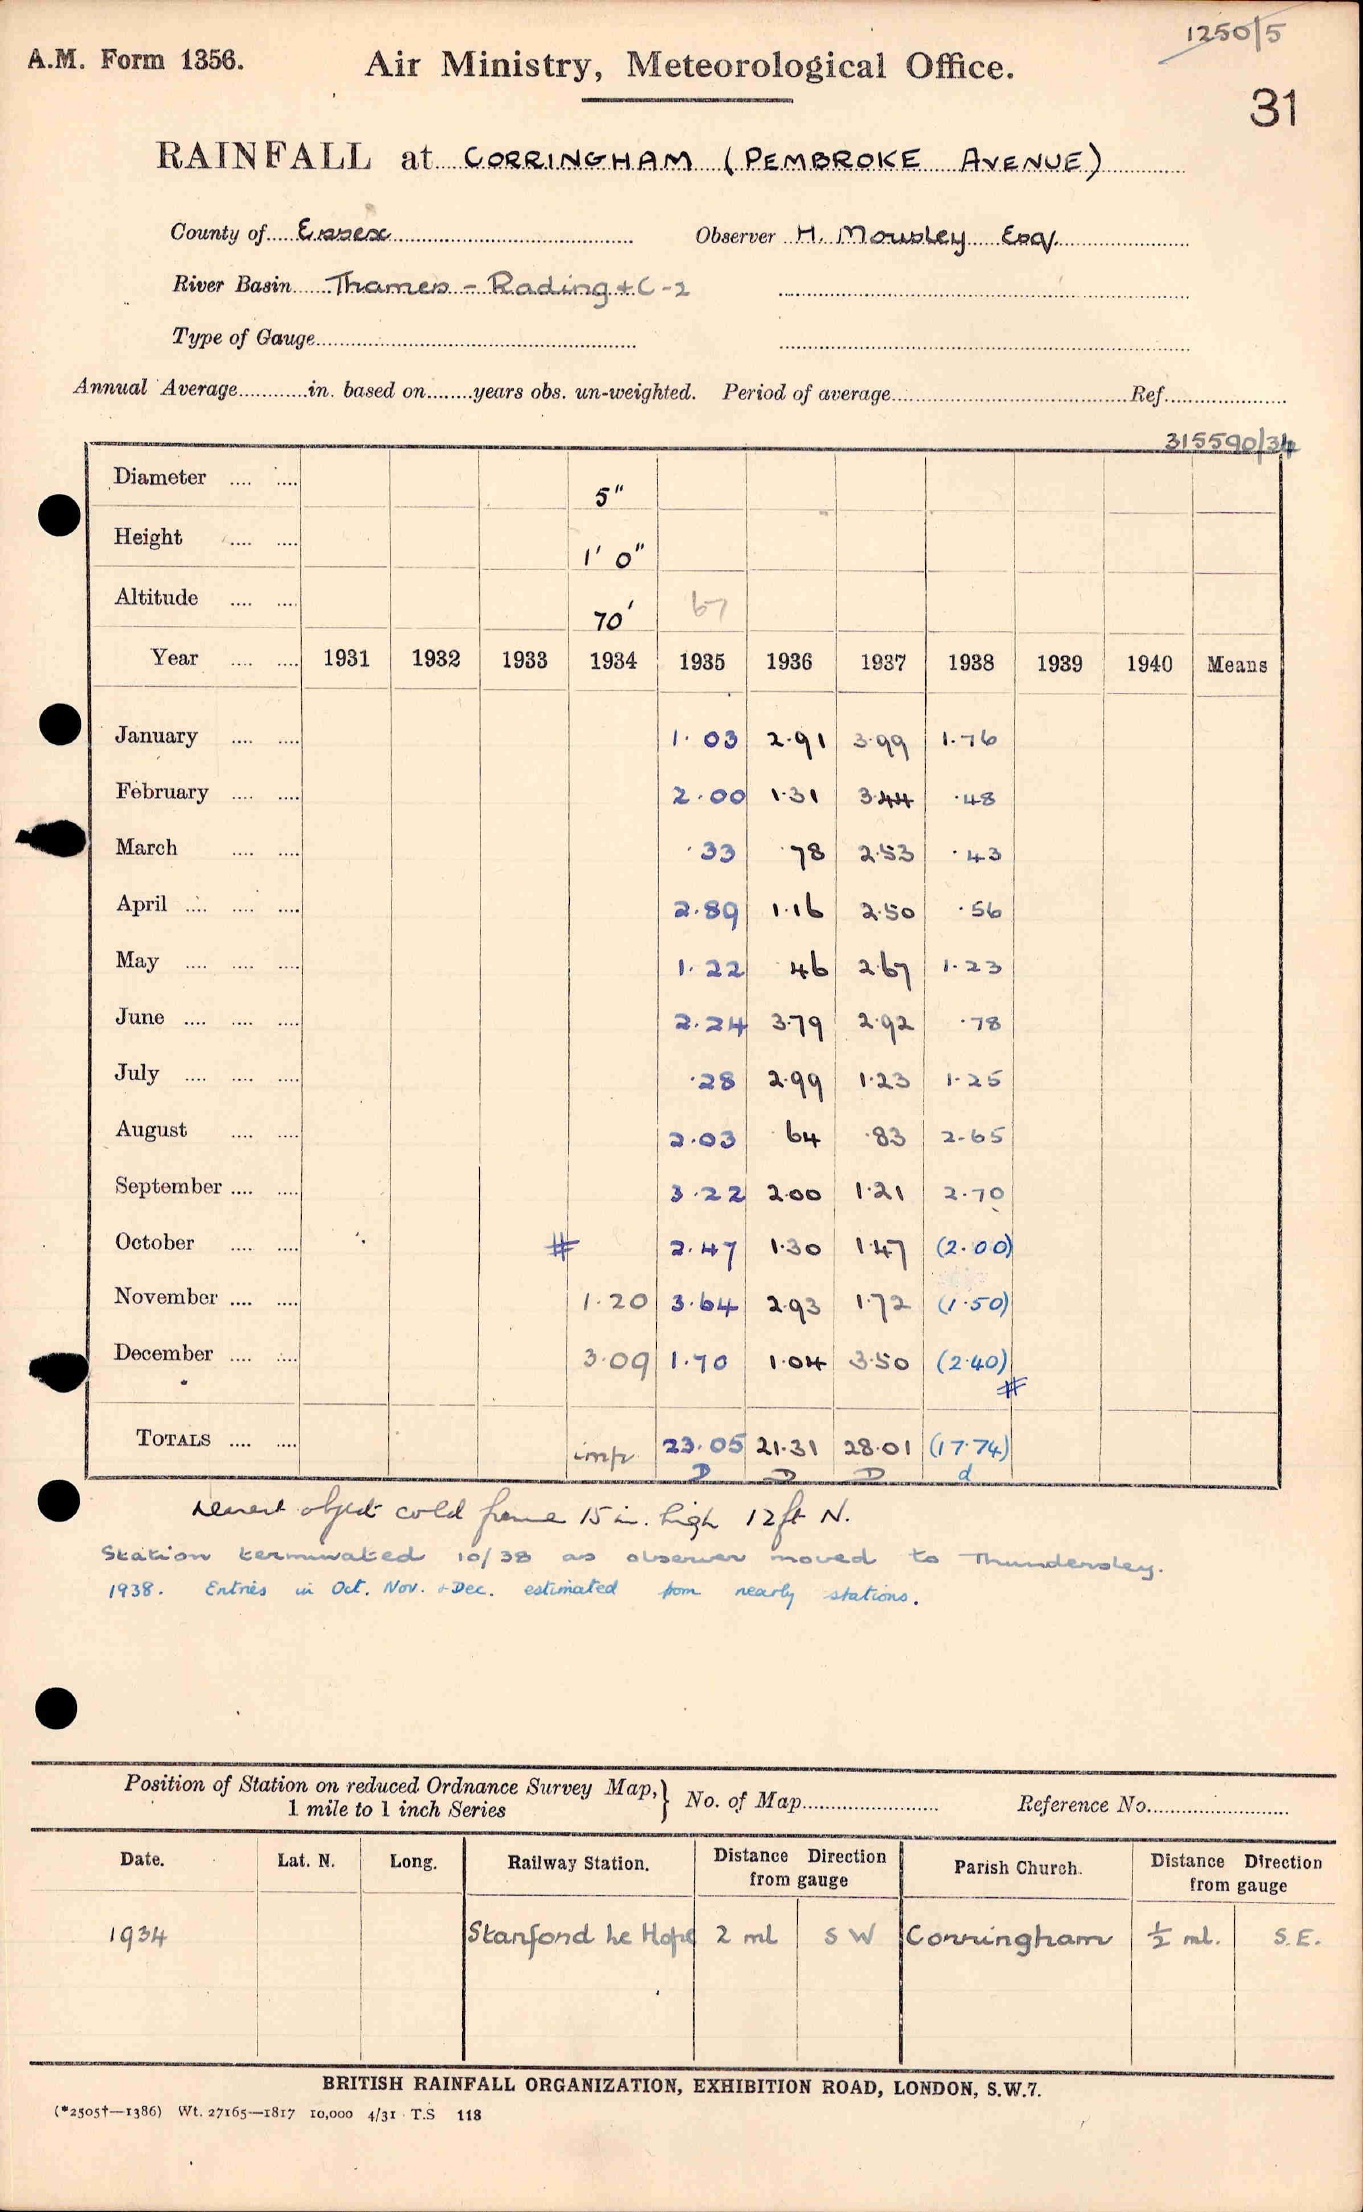 1250/5
A.M. Form 1356.
Air Ministry, Meteorological Office.
31
RAINFALL at CORRINGHAM (PEMBROKE AVENUE)
County of Essex Observer H. Mousley Esq.
River Basin Thames - Roding + C-2
Type of Gauge
Annual Average in. based on years obs. un-weighted. Period of average Ref.
315590/34
Diameter 5"
Height 1' 0"
Altitude 70' 67
Year 1931 1932 1933 1934 1935 1936 1937 1938 1939 1940 Means
January 1.03 2.91 3.99 1.76
February 2.00 1.31 3.44 .48
March .33 .78 2.53 .43
April 2.89 1.16 2.50 .56
May 1.22 .46 2.67 1.23
June 2.24 3.79 2.92 .78
July .28 2.99 1.23 1.25
August 2.03 .64 .83 2.65
September 3.22 2.00 1.21 2.70
October # 2.47 1.30 1.47 (2.00)
November 1.20 3.64 2.93 1.72 (1.50)
December 3.09 1.70 1.04 3.50 (2.40)
#
TOTALS imp 23.05 21.31 28.01 (17.74)
D D D d
Nearest object cold frame 15 in. high 12 ft N.
Station terminated 10/38 as observer moved to Thundersley.
1938. Entries in Oct. Nov. + Dec. estimated from nearby stations.
Position of Station on reduced Ordnance Survey Map,} No. of Map Reference No.
1 mile to 1 inch Series
Date. Lat. N. Long. Railway Station. Distance Direction from gauge Parish Church. Distance Direction from gauge
1934 Stanford le Hope 2 ml S W Corringham ½ ml. S.E.
BRITISH RAINFALL ORGANIZATION, EXHIBITION ROAD, LONDON, S.W.7.
(*2505†—1386) Wt. 27165—1817 10,000 4/31 T.S 118